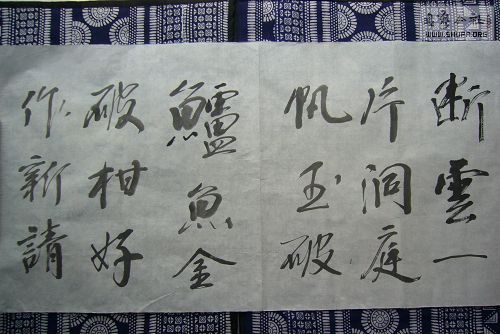 断雲一
片洞庭
帆玉破
鱸魚金
破柑好
作新請
WWW.SHUFA.ORG